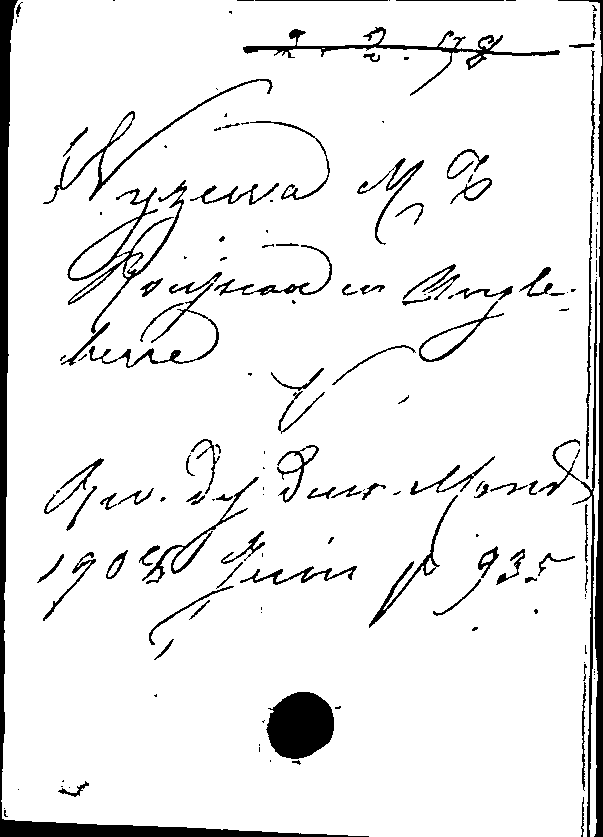 2. 2. 78
Wyzewa M T
Rousseau en Angle-
terre
V
Rev. des Deux-Mondes
1908 Juin p 935